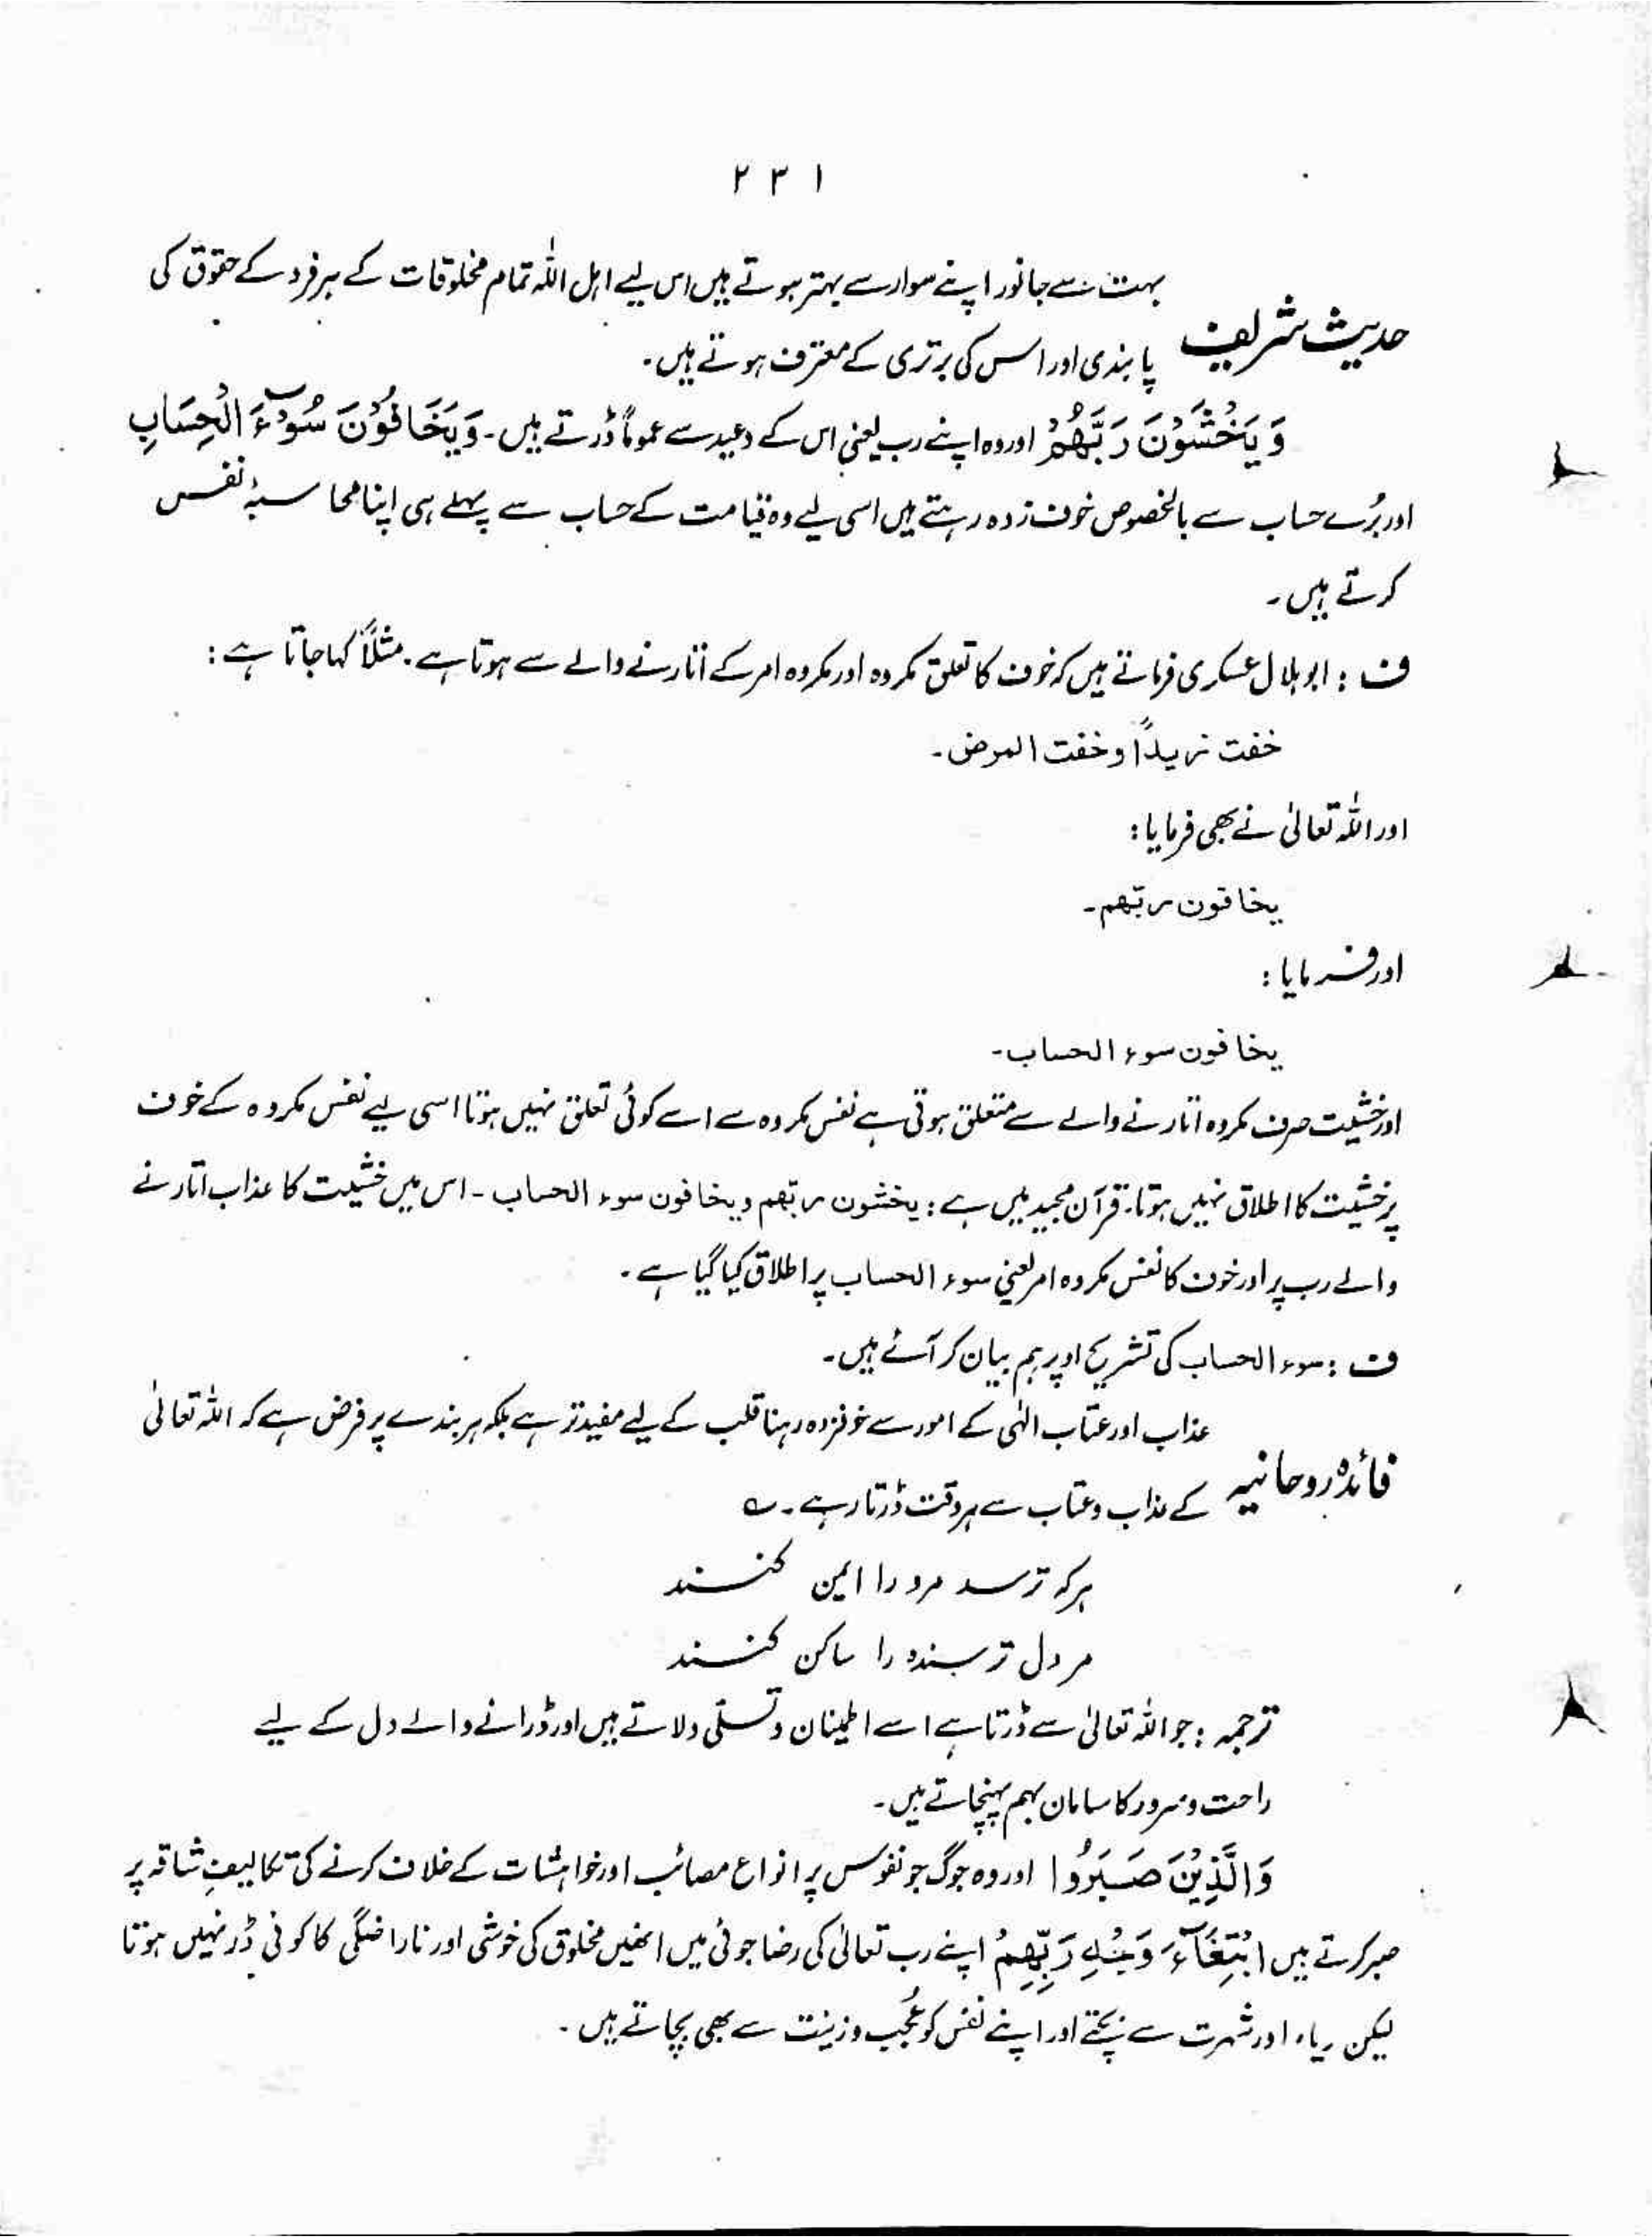 ۲۳۱
بہت سے جانور اپنے سوار سے بہتر ہوتے ہیں اس لیے اہل اللہ تمام مخلوقات کے ہر فرد کے حقوق کی
حدیث شریف
پابندی اور اس کی برتری کے معترف ہوتے ہیں۔
وَيَخْشَوْنَ رَبَّهُمْ اور وہ اپنے رب یعنی اس کے وعید سے عموماً ڈرتے ہیں۔ وَيَخَافُوْنَ سُوْٓءَ الْحِسَابِ
اور بُرے حساب سے بالخصوص خوف زدہ رہتے ہیں اسی لیے وہ قیامت کے حساب سے پہلے ہی اپنا محاسبۂ نفس
کرتے ہیں۔
ف : ابو ہلال عسکری فرماتے ہیں کہ خوف کا تعلق مکروہ اور مکروہ امر کے اتارنے والے سے ہوتا ہے۔ مثلاً کہا جاتا ہے :
خفت زیداً و خفت المرض۔
اور اللہ تعالیٰ نے بھی فرمایا :
یخافون ربّھم۔
اور فرمایا :
یخافون سوء الحساب۔
اور خشیت صرف مکروہ اتارنے والے سے متعلق ہوتی ہے نفس مکروہ سے اسے کوئی تعلق نہیں ہوتا اسی لیے نفس مکروہ کے خوف
پر خشیت کا اطلاق نہیں ہوتا۔ قرآن مجید میں ہے : یخشون ربّھم ویخافون سوء الحساب۔ اس میں خشیت کا عذاب اتارنے
والے رب پر اور خوف کا نفس مکروہ امر یعنی سوء الحساب پر اطلاق کیا گیا ہے۔
ف : سوء الحساب کی تشریح اوپر ہم بیان کر آئے ہیں۔
عذاب اور عتاب الٰہی کے امور سے خوفزدہ رہنا قلب کے لیے مفید تر ہے بلکہ ہر بندے پر فرض ہے کہ اللہ تعالیٰ
فائدہ روحانیہ
کے عذاب و عتاب سے ہر وقت ڈرتا رہے۔ ؎
ہر کہ ترسد مرو را ایمن کنند
مر دل ترسندہ را ساکن کنند
ترجمہ : جو اللہ تعالیٰ سے ڈرتا ہے اسے اطمینان و تسلّی دلاتے ہیں اور ڈرانے والے دل کے لیے
راحت و سرور کا سامان بہم پہنچاتے ہیں۔
وَالَّذِيْنَ صَبَرُوا اور وہ جوگ جو نفوس پر انواع مصائب اور خواہشات کے خلاف کرنے کی تکالیفِ شاقہ پر
صبر کرتے ہیں ابْتِغَآءَ وَجْهِ رَبِّهِمْ اپنے رب تعالیٰ کی رضا جوئی میں انھیں مخلوق کی خوشی اور ناراضگی کا کوئی ڈر نہیں ہوتا
لیکن ریاء اور شہرت سے بچتے اور اپنے نفس کو عُجب و زینت سے بھی بچاتے ہیں۔